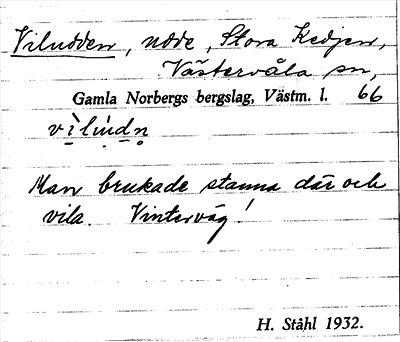 Viludden, udde, Stora Kedjen,
Västervåla sn,
Gamla Norbergs bergslag, Västm. l. 66
Man brukade stanna där och
vila. Vinterväg!
H. Ståhl 1932.